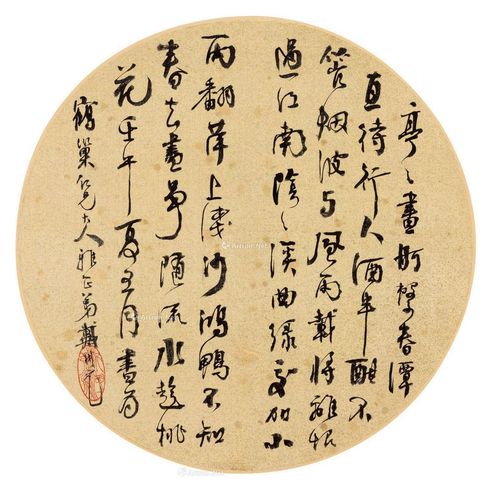 亭〻畫舸繫春潭
直待行人酒半酣不
管烟波与風雨載將離恨
過江南陰〻溪曲綠交加小
雨翻萍上淺沙鵝鴨不知
春去盡爭隨流水趁桃
花壬午夏五月書為
鶴巢仁兄大人雅正弟戴
Artron.Net